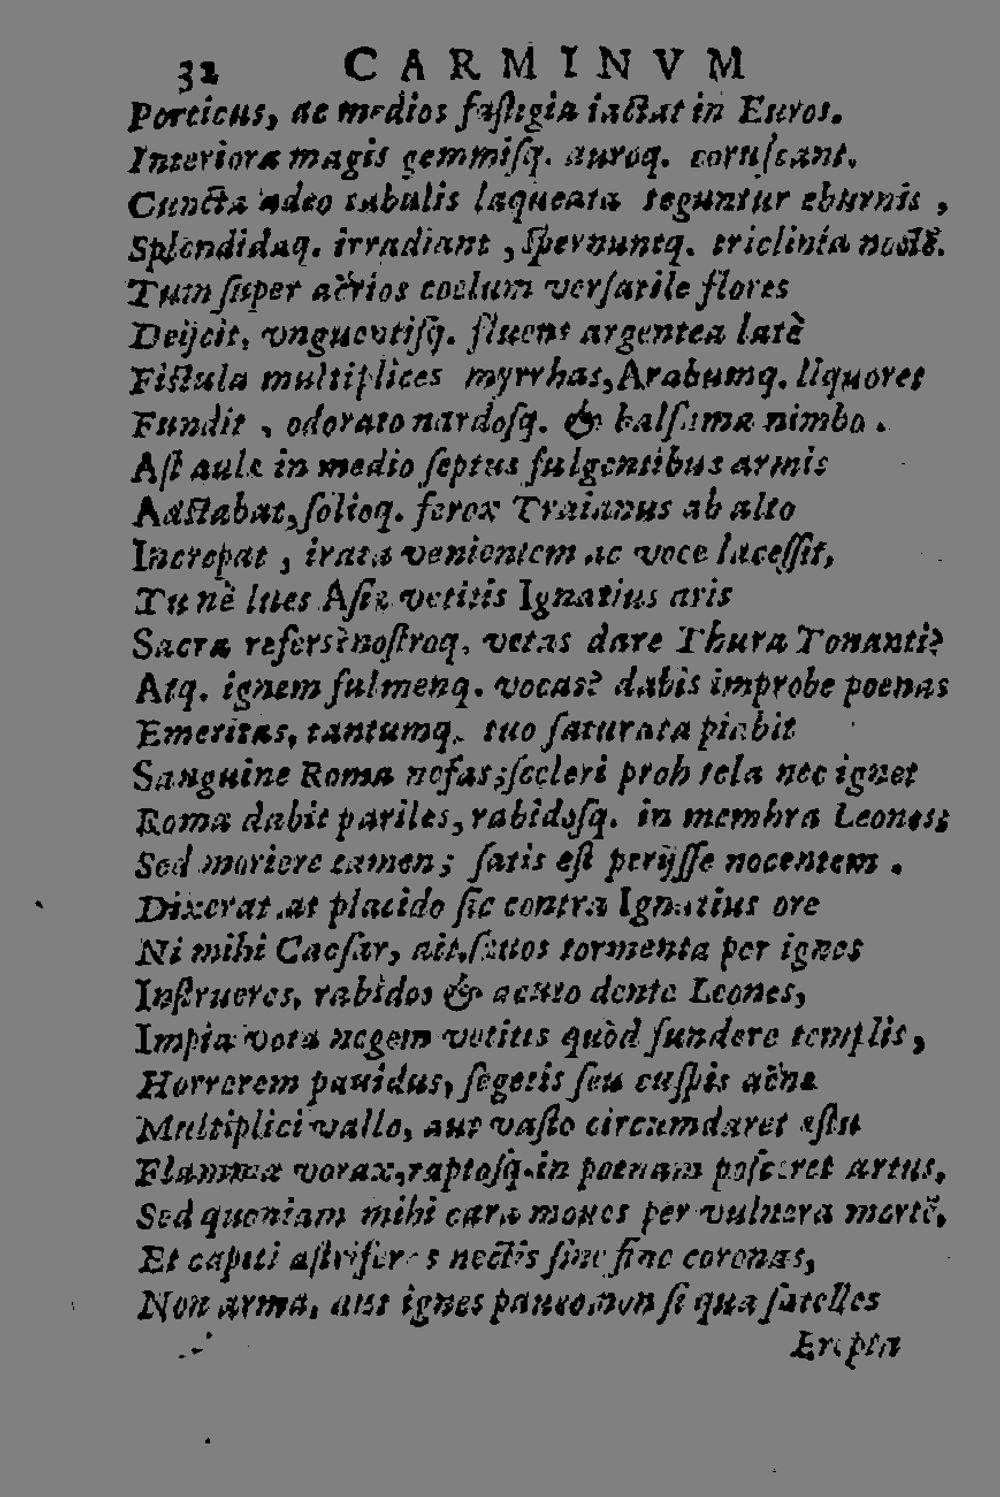 32 CARMINVM
Porticus, ac medios faſtigia iactat in Euros.
Interiora magis gemmiſq. auroq. coruſcant.
Cuncta adeo tabulis laqueata teguntur eburnis ,
Splendidaq. irradiant , ſpernuntq. triclinia noctẽ.
Tum ſuper aërios coelum verſatile flores
Deijcit, vnguentiſq. fluens argentea latè
Fiſtula multiplices myrrhas, Arabumq. liquores
Fundit , odorato nardoſq. & balſama nimbo .
Aſt aulæ in medio ſeptus fulgentibus armis
Adſtabat, ſolioq. ferox Traianus ab alto
Increpat , irata venientem ac voce laceſſit,
Tu nè lues Aſiæ vetitis Ignatius aris
Sacra refers? noſtroq. vetas dare Thura Tonanti?
Atq. ignem fulmenq. vocas? dabis improbe poenas
Emeritas, tantumq. tuo ſaturata piabit
Sanguine Roma nefas; ſceleri proh tela nec ignet
Roma dabit pariles, rabidoſq. in membra Leones;
Sed moriere tamen ; ſatis eſt perijſſe nocentem .
Dixerat. at placido ſic contra Ignatius ore
Ni mihi Caeſar, ait, ſæuos tormenta per ignes
Inſtrueres, rabidos & acuto dente Leones,
Impia vota negem vetitis quòd fundere templis ,
Horrerem pauidus, ſegetis ſeu cuſpis aëna
Multiplici vallo, aut vaſto circumdaret æſtu
Flamma vorax, raptoſq. in poenam poſceret artus,
Sed quoniam mihi cara moues per vulnera mortẽ,
Et capiti aſtriferas nectis ſine fine coronas,
Non arma, aut ignes paueo, non ſi qua ſatelles
Erepta